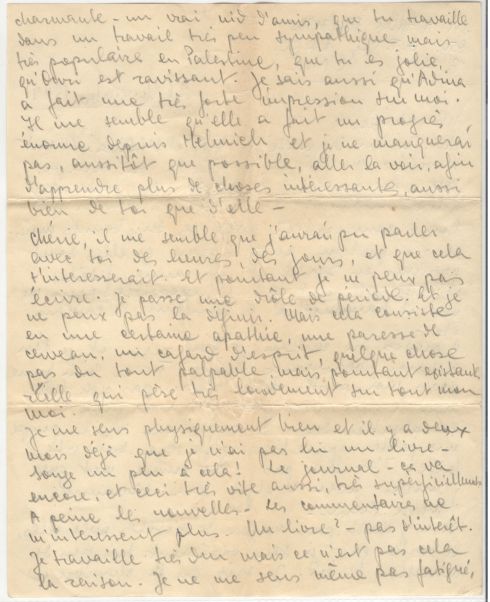 charmante - un vrai nid d'amis, que tu travaille
dans un travail très peu sympathique mais
très populaire en Palestine, que tu es jolie,
qu' est ravissant. Je sais aussi qu'
a fait une très forte impression sur moi.
Il me semble qu'elle a fait un progrès
énorme depuis et je ne manquerai
pas, aussitôt que possible, aller la voir, afin
d'apprendre plus de choses intéressantes, aussi
bien de toi que d'elle -
Chérie, il me semble que j'aurai pu parler
avec toi des heures, des jours, et que cela
t'intéresserait. Et pourtant je ne peux pas
écrire. Je passe une drôle de période. Et je
ne peux pas la définir. Mais cela consiste
en une certaine apathie, une paresse de
cerveau, un cafard d'esprit, quelque chose
pas du tout palpable, mais pourtant existant
réelle qui pèse très lourdement sur tout mon
moi.
Je me sens physiquement bien et il y a deux
mois déjà que je n'ai pas lu un livre -
songe un peu à cela! Le journal - ça va
encore, et ceci très vite aussi, très superficiellement
A peine les nouvelles - Les commentaires ne
m'intéressent plus. Un livre? - pas d'intérêt.
Je travaille très dur mais ce n'est pas cela
la raison. Je ne me sens même pas fatigué,